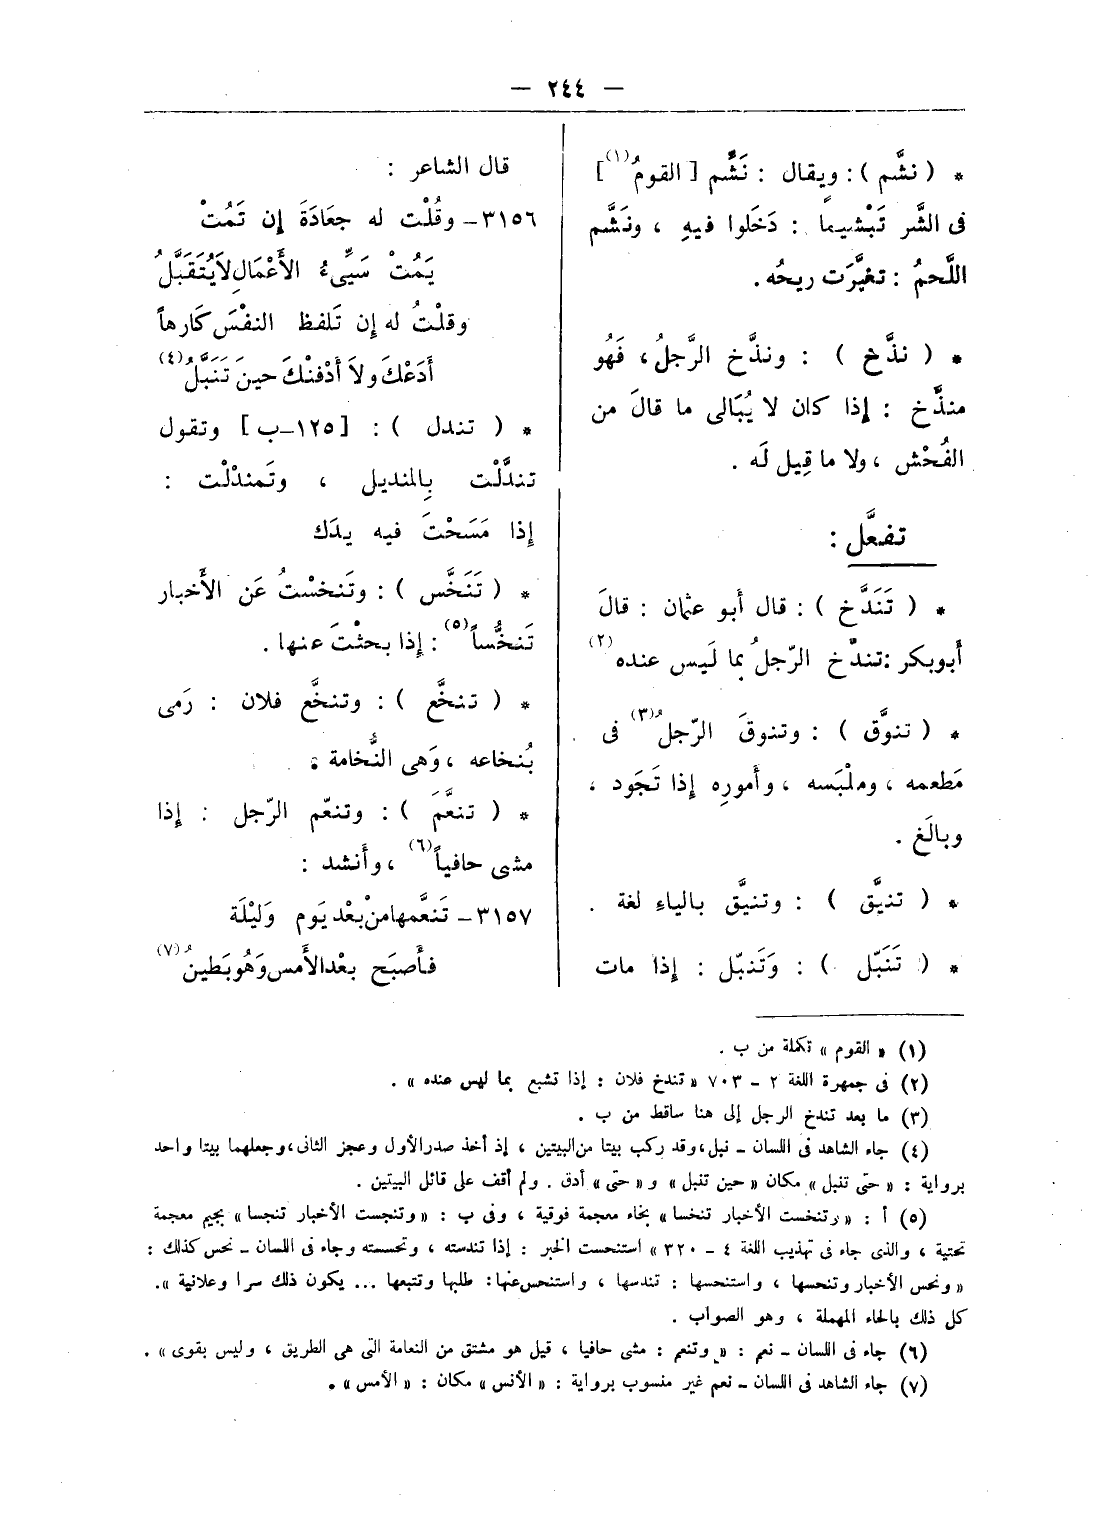 — ٢٤٤ —
* ( نشَّم ) : ويقال : نَشَّم [ القومُ(١) ]
فى الشَّر تَبْشيماً : دَخَلوا فيهِ ، ونَشَّم
اللَّحمُ : تغيَّرَت ريحُه .
* ( نذَّخ ) : ونذَّخ الرَّجلُ ، فَهُو
منذَّخ : إذا كان لا يُبَالى ما قالَ من
الفُحْش ، ولا ما قِيل لَه .
تفعَّل :
* ( تَنَدَّخ ) : قال أبو عثمان : قالَ
أبوبكر : تندّخ الرّجلُ بما لَيس عنده (٢)
* ( تنوَّق ) : وتنوقَ الرّجلُ(٣) فى
مَطعمه ، وملْبَسه ، وأمورِه إذا تَجَود ،
وبالَغ .
* ( تنيَّق ) : وتنيَّق بالياءِ لغة .
* ( تَنَبّل ) : وَتَنبّل : إذا مات
قال الشاعر :
٣١٥٦ – وقُلْت له جعَادَةَ إن تَمُتْ
يَمُتْ سَيِّىءُ الأَعْمَالِ لاَيُتَقَبَّلُ
وقلْتُ له إن تَلفظ النفْسَ كَارهاً
أدَعْكَ ولاَ أدْفنْكَ حينَ تَنَبَّلُ (٤)
* ( تندل ) : [ ١٢٥–ب ] وتقول
تندَّلْت بِالمنديل ، وتَمندْلْت :
إذا مَسَحْتَ فيه يدَك
* ( تَنَخَّس ) : وتَنخسْتُ عَن الأَخبار
تَنخسُّاً(٥) : إذا بحثْتَ عنها .
* ( تنخَّع ) : وتنخَّع فلان : رَمى
بُنخاعه ، وَهى النُّخامة .
* ( تنعَّمَ ) : وتنعّم الرّجل : إذا
مشى حافياً(٦) ، وأَنشد :
٣١٥٧ – تَنعَّمها منْ بعْد يَوم وَليْلَة
فأَصبَح بعْدالأَمس وَهُو بَطينُ (٧)
(١) « القوم » تكملة من ب .
(٢) فى جمهرة اللغة ٢ – ٧٠٣ « تندخ فلان : إذا تشبع بما ليس عنده » .
(٣) ما بعد تندخ الرجل إلى هنا ساقط من ب .
(٤) جاء الشاهد فى اللسان – نبل ، وقد ركب بيتا من البيتين ، إذ أخذ صدر الأول وعجز الثانى ، وجعلهما بيتا واحد
برواية : « حتى تنبل » مكان « حين تنبل » و « حتى » أدق . ولم أقف على قائل البيتين .
(٥) أ : « وتنخست الأخبار تنخسا » بخاء معجمة فوقية ، وفى ب : « وتنجست الأخبار تنجسا » بجيم معجمة
تحتية ، والذى جاء فى تهذيب اللغة ٤ – ٣٢٠ » استنحست الخبر : إذا تندسته ، وتحسسته وجاء فى اللسان – نحس كذلك :
« ونحس الأخبار وتنحسها ، واستنحسها : تندسها ، واستنحس عنها : طلبها وتتبعها ... يكون ذلك سرا وعلانية » .
كل ذلك بالحاء المهملة ، وهو الصواب .
(٦) جاء فى اللسان – نعم : « وتنعم : مشى حافيا ، قيل هو مشتق من النعامة التى هى الطريق ، وليس بقوى » .
(٧) جاء الشاهد فى اللسان – نعم غير منسوب برواية : « الأنس » مكان : « الأمس » .